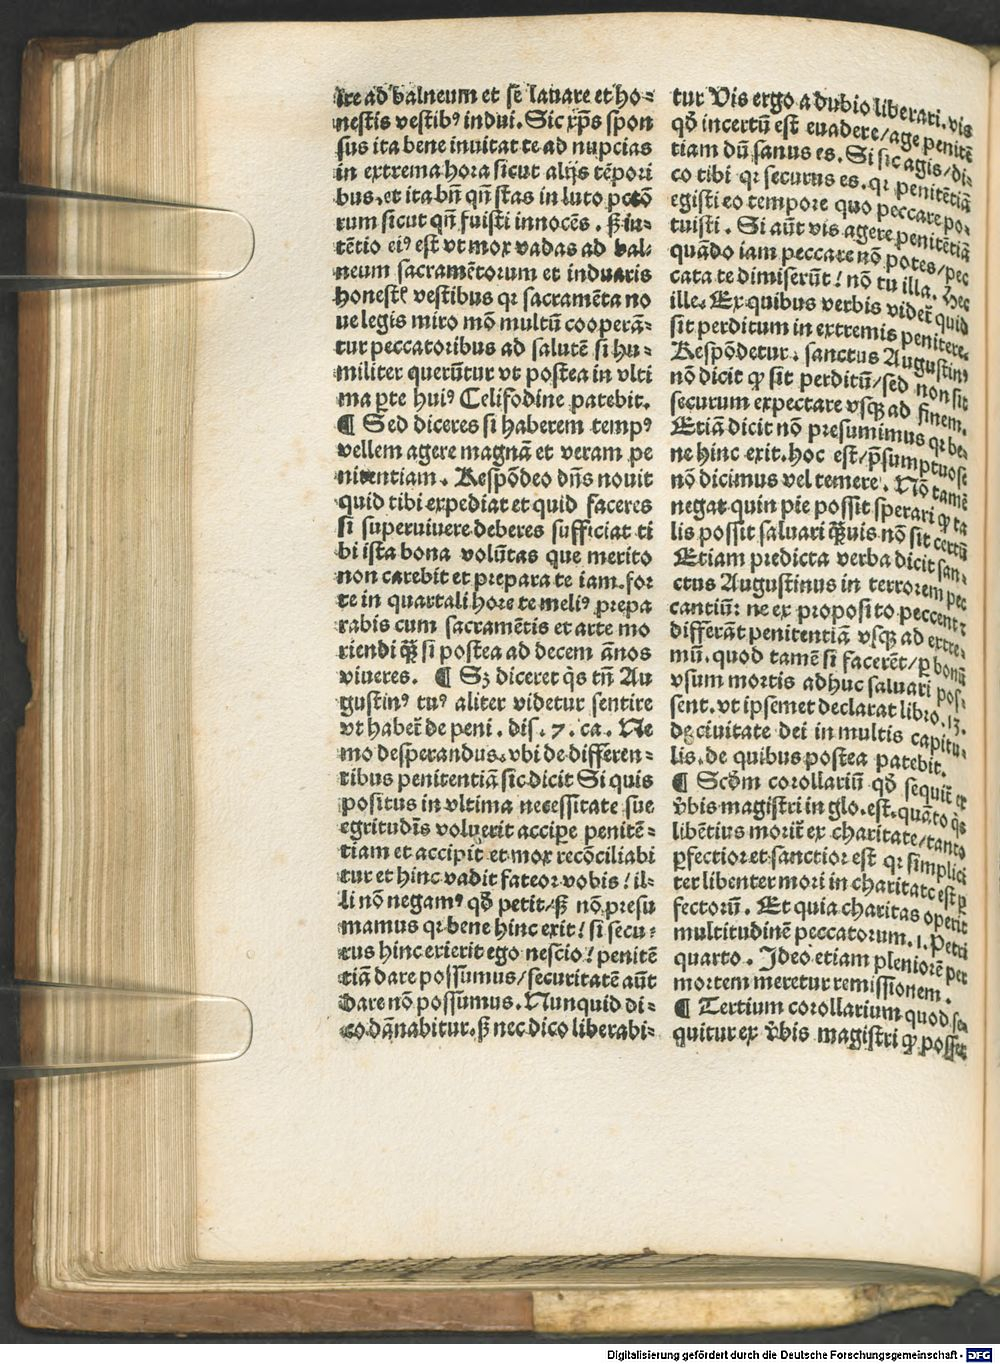 ire ad balneum et sē lauare et ho-
nestis vestibꝰ indui. Sic xp̄s spon
sus ita bene inuitat te ad nupcias
in extrema hora sicut alijs tēpori
bus. et ita bn̄ qn̄ stas in luto pctō
rum sicut qn̄ fuisti innocēs. sꝫ in-
tētio eiꝰ est vt mox vadas ad bal-
neum sacramētorum et induaris
honestꝭ vestibus qꝛ sacramēta no
ue legis miro mō multū cooperā-
tur peccatoribus ad salutē si hu-
militer querūtur vt postea in vlti
ma ꝑte huiꝰ Celifodine patebit.
¶ Sed diceres si haberem tempꝰ
vellem agere magnā et veram pe
nitentiam. Respōdeo dn̄s nouit
quid tibi expediat et quid faceres
si superuiuere deberes sufficiat ti
bi ista bona volūtas que merito
non carebit et prepara te iam. for
te in quartali hore te meliꝰ prepa
rabis cum sacramētis et arte mo
riendi qꝫ̄ si postea ad decem ānos
viueres. ¶ Sꝫ diceret q̇s tn̄ Au
gustinꝰ tuꝰ aliter videtur sentire
vt haber̄ de peni. dis. 7. ca. Ne
mo desperandus. vbi de differen-
tibus penitentiā sic dicit Si quis
positus in vltima necessitate sue
egritudīs voluerit accipe penitē-
tiam et accipit et mox recōciliabi
tur et hinc vadit fateor vobis! il-
li nō negamꝰ qď petit/sꝫ nō presu
mamus qꝛ bene hinc exit! si secu-
rus hinc exierit ego nescio! penitē
tiā dare possumus/securitatē aūt
dare nō possumus. Nunquid di-
co dānabitur. sꝫ nec dico liberabi-
tur Vis ergo a dubio liberari. vis
qď incertū est euadere/age penitē
tiam dū sanus es. Si sic agis/di-
co tibi qꝛ securus es. qꝛ penitētiā
egisti eo tempore quo peccare po-
tuisti. Si aūt vis agere penitētiā
quādo iam peccare nō potes/pec
cata te dimiserūt! nō tu illa. Hec
ille. Ex quibus verbis videt̄ quid
sit perditum in extremis penitere.
Respōdetur. sanctus Augustinꝰ
nō dicit ꝙ sit perditū/sed non sit
securum expectare vsqꝫ ad finem.
Etiā dicit nō presumimus qꝛ be-
ne hinc exit. hoc est/p̄sumptuose
nō dicimus vel temere. Nō tamē
negat quin pie possit sperari ꝙ ta
lis possit saluari qꝫ̄uis nō sit certū
Etiam predicta verba dicit san-
ctus Augustinus in terrorem pec
cantiū: ne ex proposito peccent ⁊
differāt penitentiā vsqꝫ ad extre-
mū. quod tamē si facerēt/ꝑ bonū
vsum mortis adhuc saluari pos-
sent. vt ipsemet declarat libro. 13.
de ciuitate dei in multis capitu-
lis. de quibus postea patebit.
¶ Scďm corollariū qď sequit̄ ex
v̇bis magistri in glo. est. quāto q̇s
libētius morit̄ ex charitate/tanto
ꝑfectior et sanctior est qꝛ simplici
ter libenter mori in charitate est ꝑ
fectorū. Et quia charitas operit
multitudinē peccatorum. 1. Petri
quarto. Ideo etiam pleniorē per
mortem meretur remissionem.
¶ Tertium corollarium quod se
quitur ex v̇bis magistri ꝙ posset
Digitalisierung gefördert durch die Deutsche Forschungsgemeinschaft - DFG